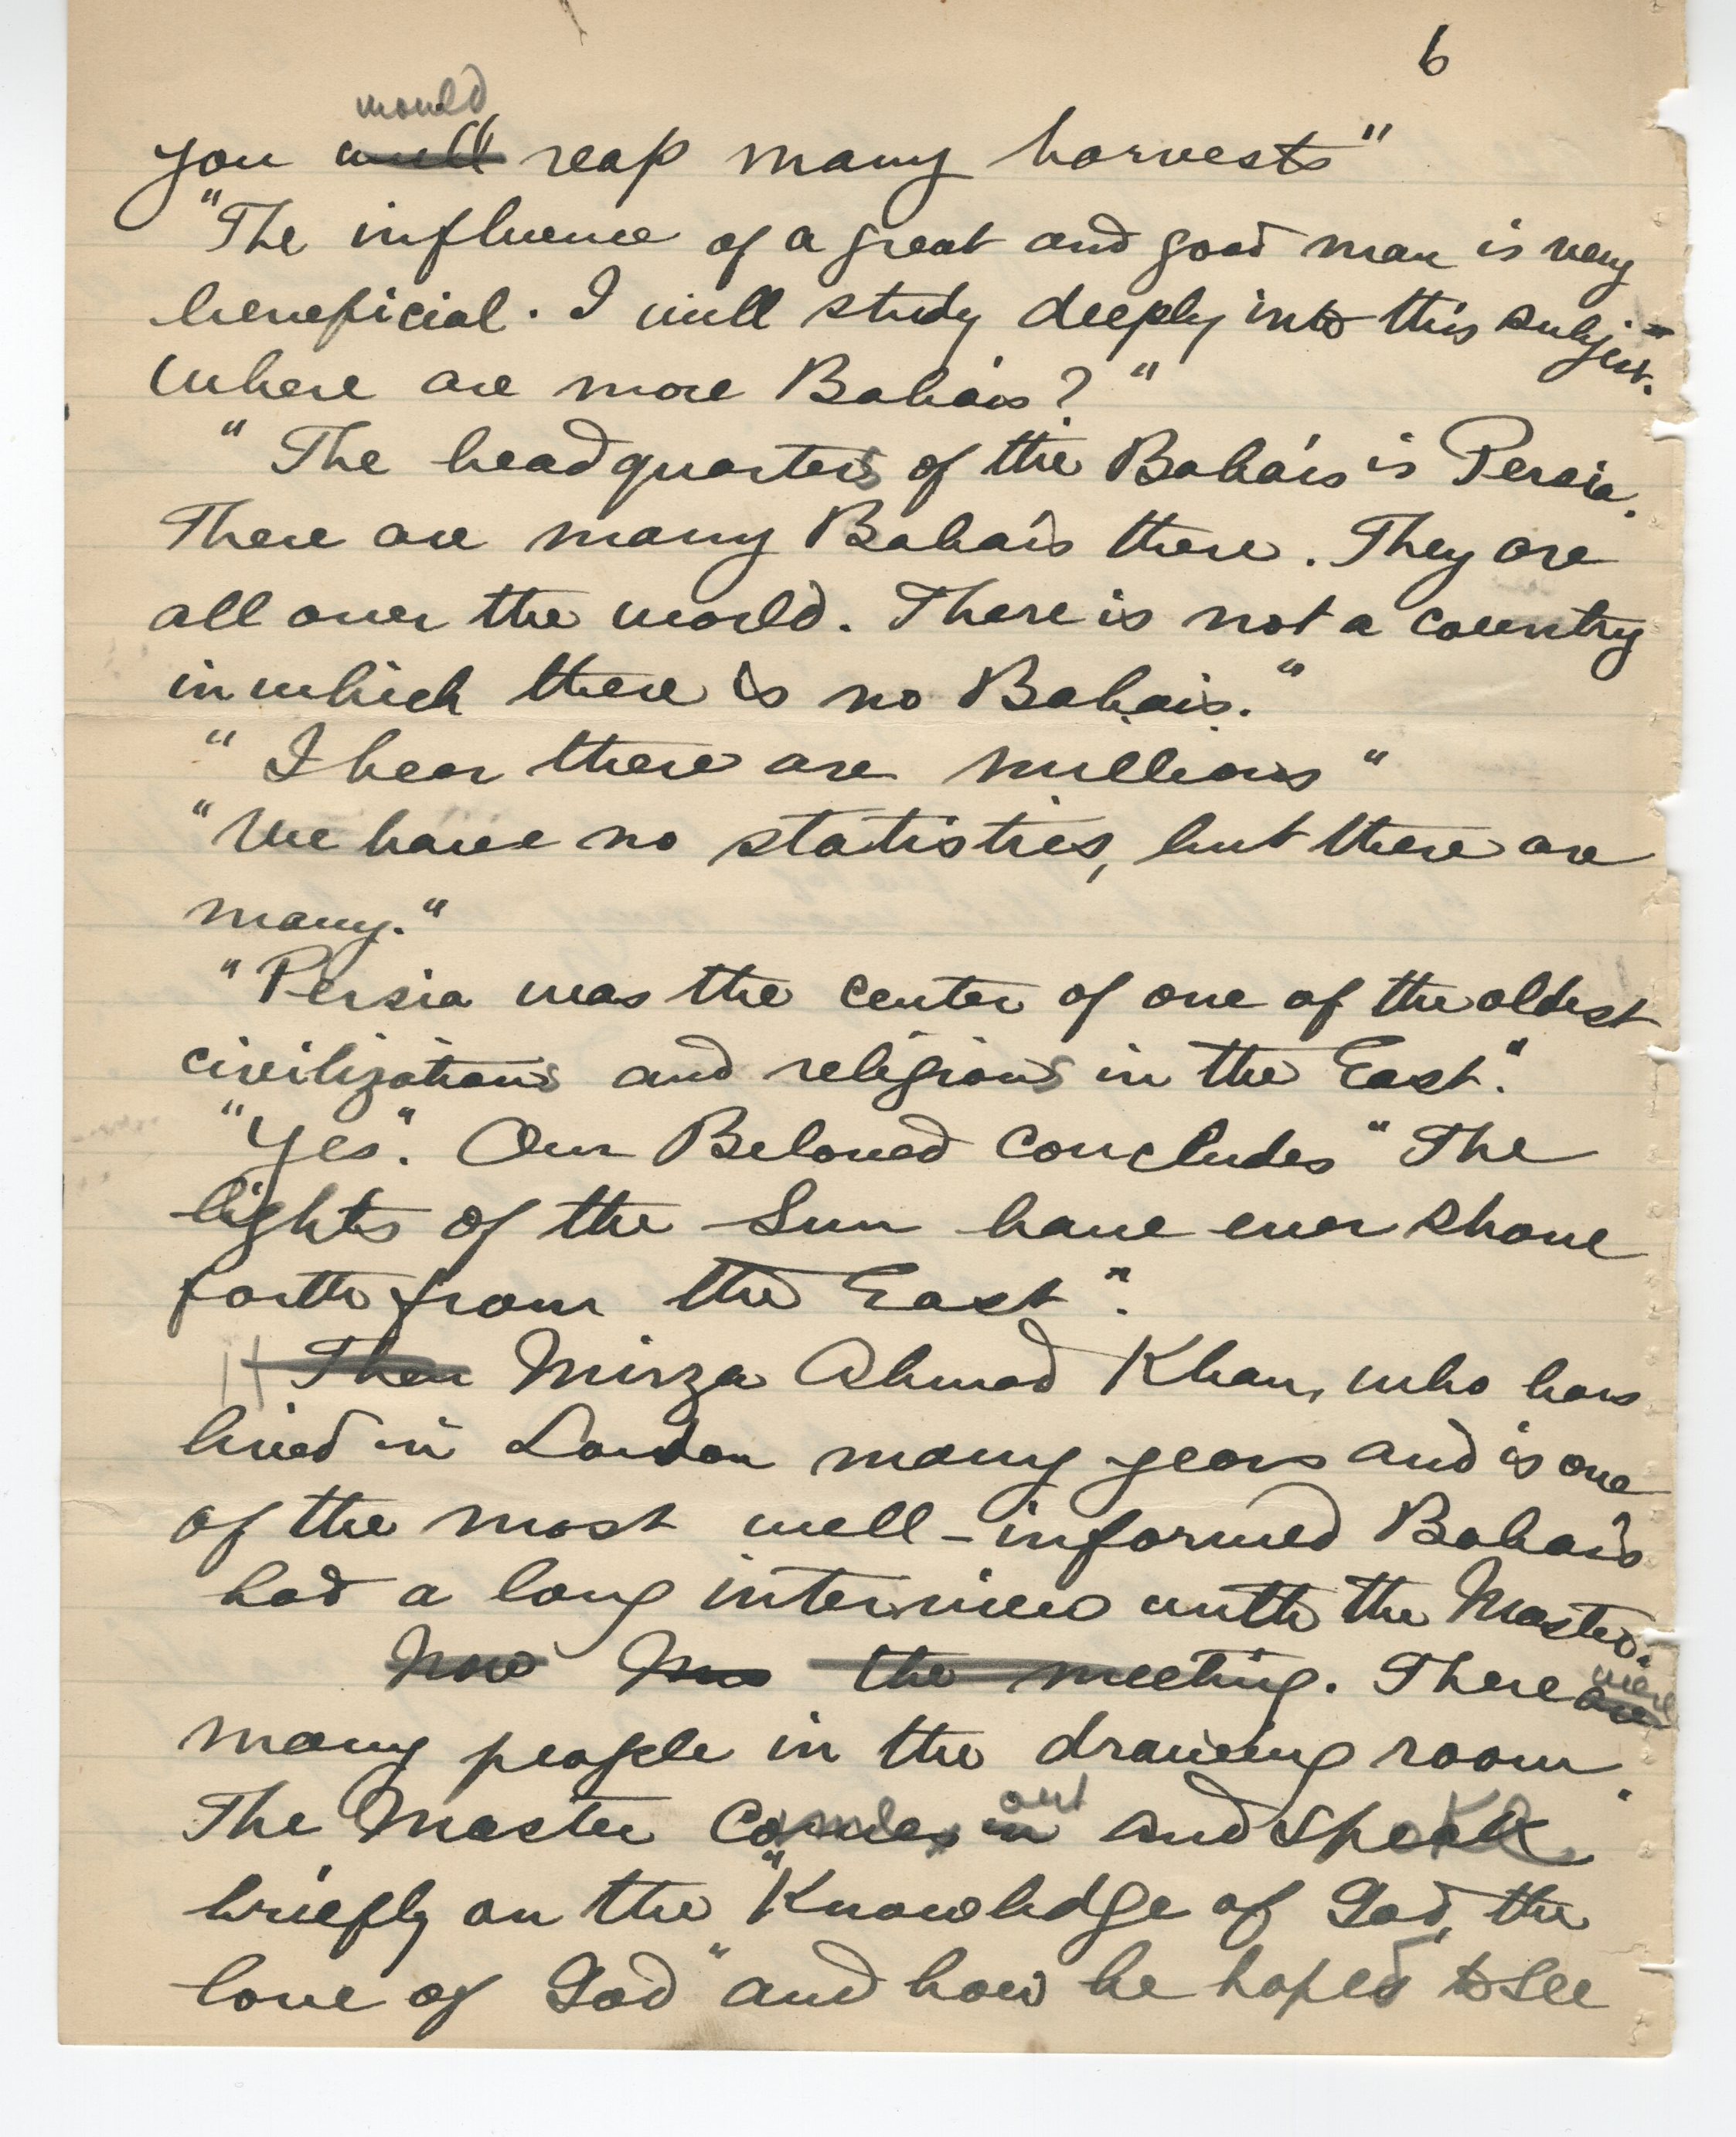 6
would
you will reap many harvests"
"The influence of a great and good man is very
beneficial. I will study deeply into this subject.
Where are more Bahais?"
"The headquarters of the Bahais is Persia.
There are many Bahais there. They are
all over the world. There is not a country
in which there is no Bahais."
"I hear there are millions"
"We have no statistics, but there are
many."
"Persia was the center of one of the oldest
civilizations and religions in the East".
"Yes". Our Beloved concludes "The
lights of the Sun have ever shone
forth from the East".
Then Mirza Ahmad Khan, who has
lived in London many years and is one
of the most well-informed Bahais
had a long interview with the Master.
Now the meeting. There are
were
many people in the drawing room.
out
The Master comes in and spoke
briefly on the "Knowledge of God, the
love of God" and how he hoped to see